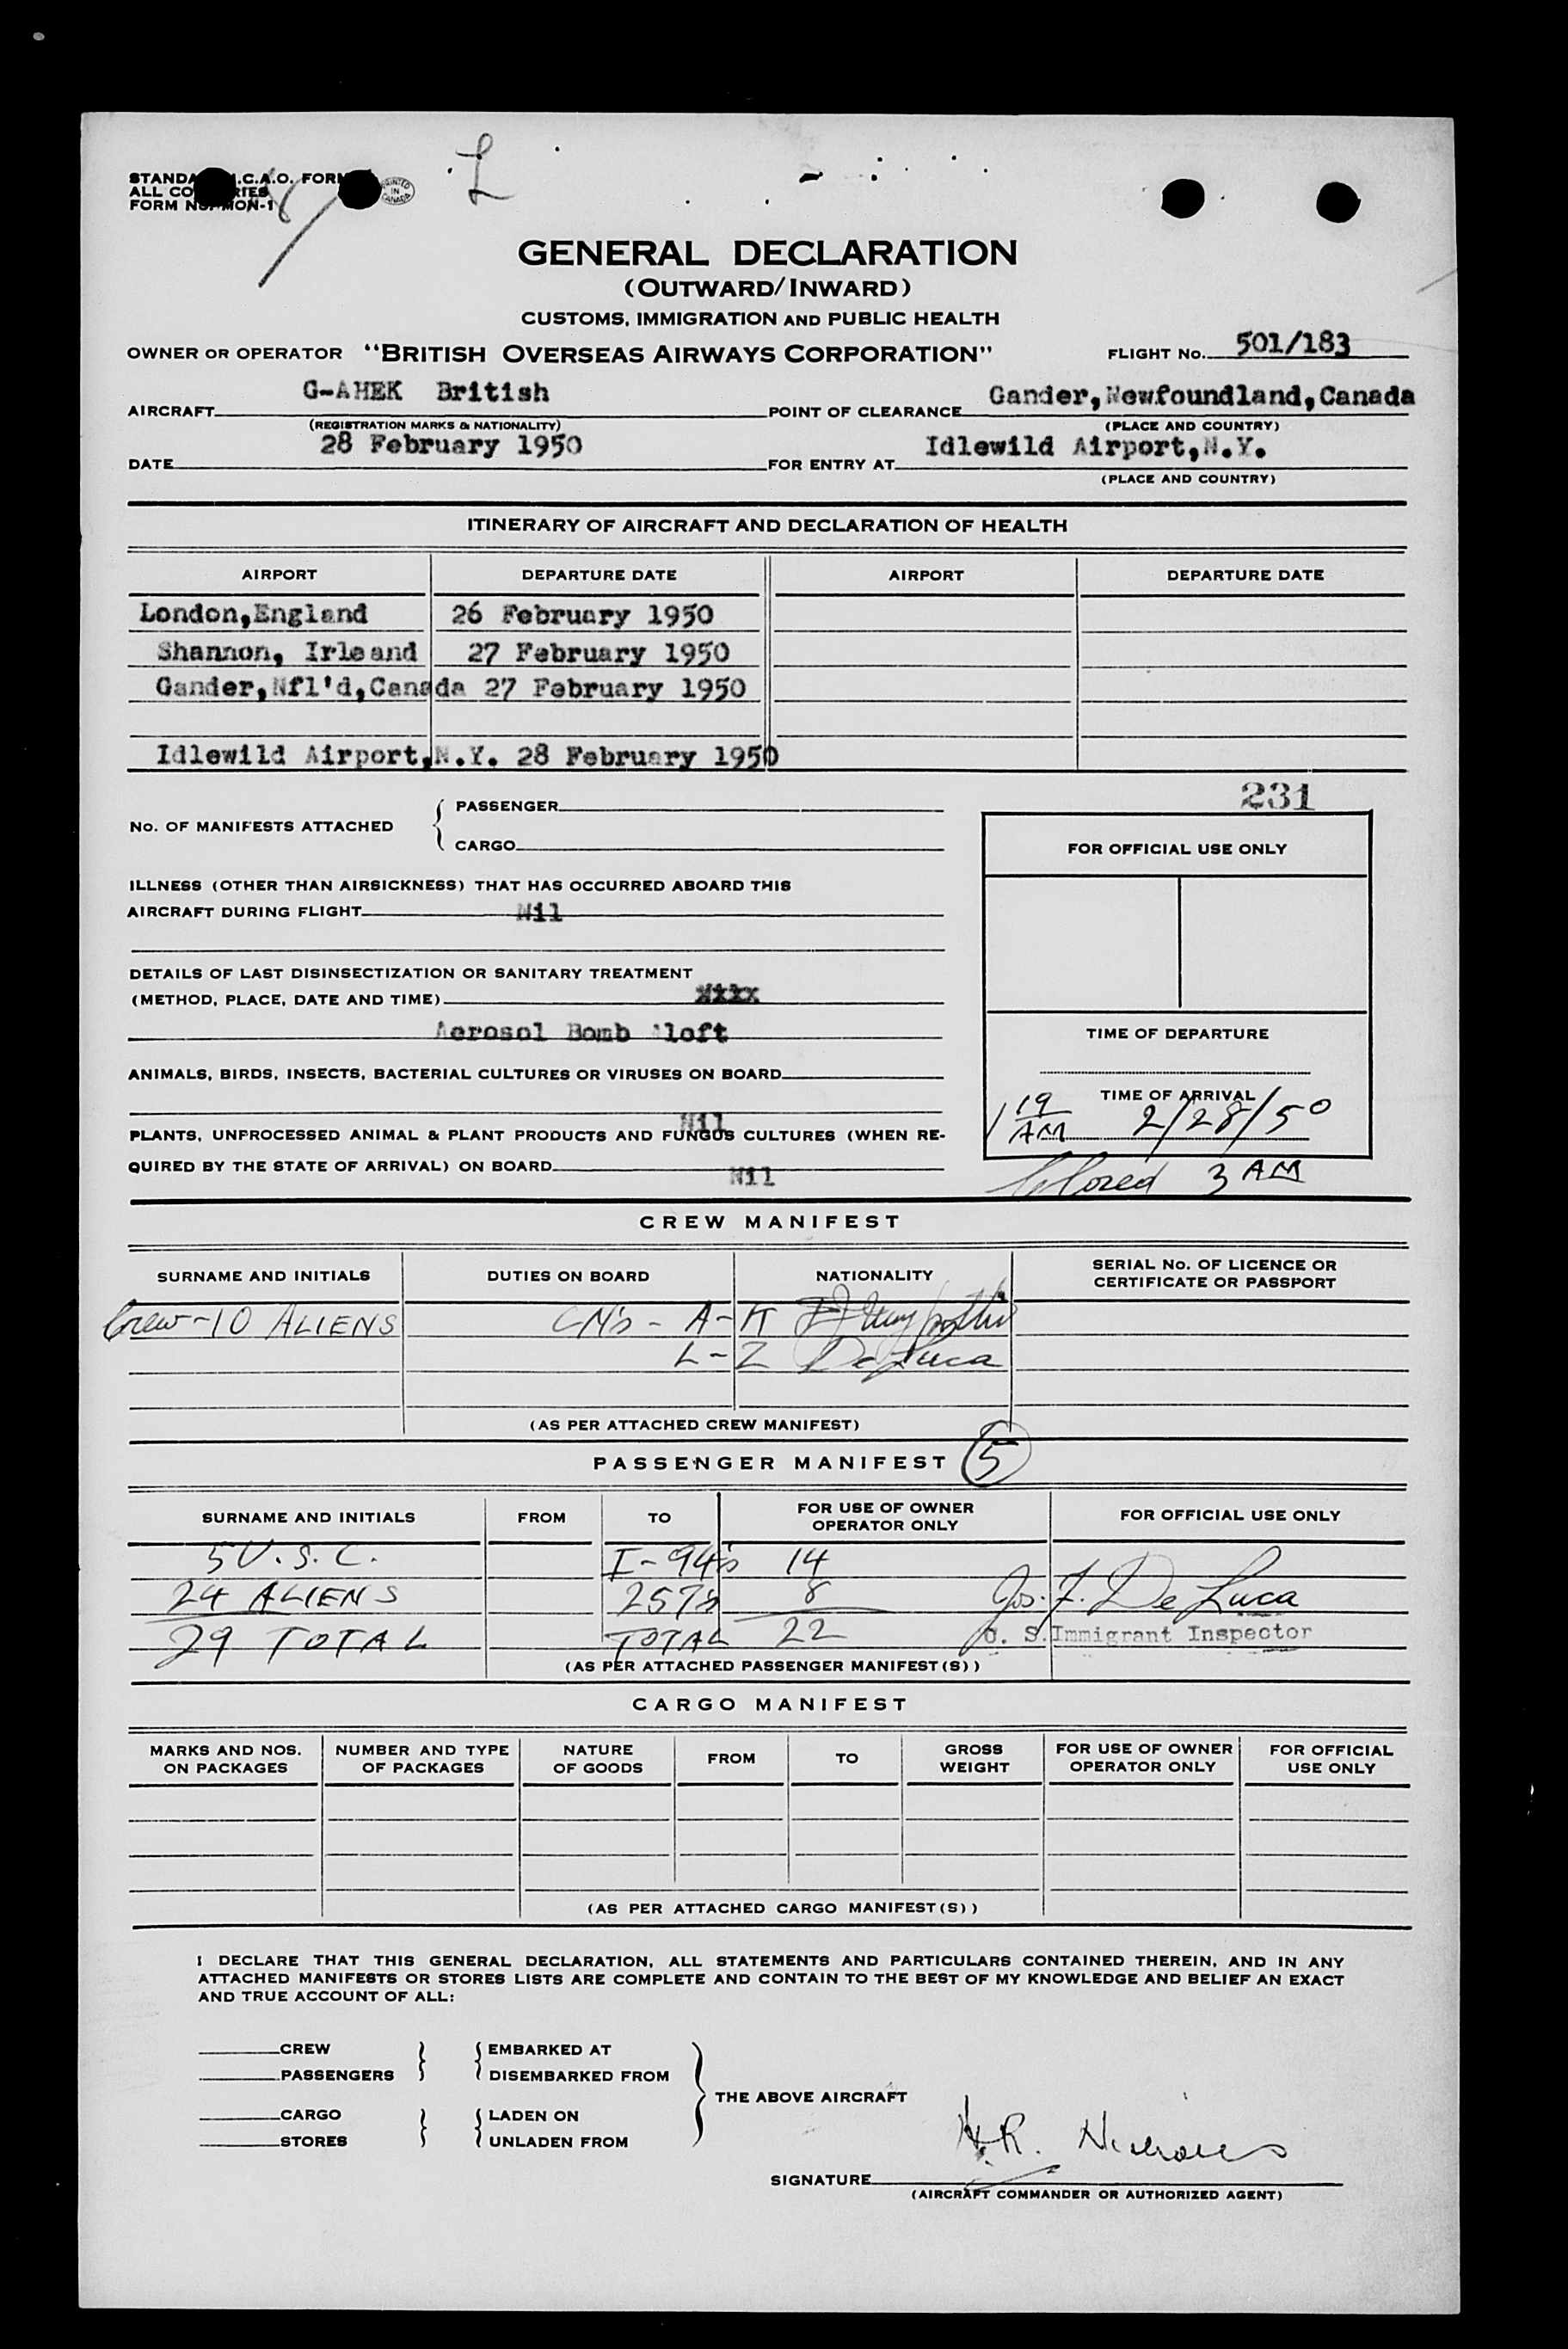 L
STANDA I.C.A.O. FORM
ALL CO RIES
FORM NO. MON-1
PRINTED IN CANADA
GENERAL DECLARATION
(OUTWARD/INWARD)
CUSTOMS, IMMIGRATION AND PUBLIC HEALTH
OWNER OR OPERATOR "BRITISH OVERSEAS AIRWAYS CORPORATION" FLIGHT No. 501/183
AIRCRAFT G-AHEK British POINT OF CLEARANCE Gander,Newfoundland,Canada
(REGISTRATION MARKS & NATIONALITY) (PLACE AND COUNTRY)
DATE 28 February 1950 FOR ENTRY AT Idlewild Airport,N.Y.
(PLACE AND COUNTRY)
ITINERARY OF AIRCRAFT AND DECLARATION OF HEALTH
AIRPORT DEPARTURE DATE AIRPORT DEPARTURE DATE
London,England 26 February 1950
Shannon, Irleand 27 February 1950
Gander,Nfl'd,Canada 27 February 1950
Idlewild Airport,N.Y. 28 February 1950
231
No. OF MANIFESTS ATTACHED PASSENGER
CARGO
FOR OFFICIAL USE ONLY
ILLNESS (OTHER THAN AIRSICKNESS) THAT HAS OCCURRED ABOARD THIS
AIRCRAFT DURING FLIGHT Nil
DETAILS OF LAST DISINSECTIZATION OR SANITARY TREATMENT
(METHOD, PLACE, DATE AND TIME)
Aerosol Bomb Aloft
TIME OF DEPARTURE
ANIMALS, BIRDS, INSECTS, BACTERIAL CULTURES OR VIRUSES ON BOARD
Nil
TIME OF ARRIVAL
1 19 AM 2/28/50
PLANTS, UNPROCESSED ANIMAL & PLANT PRODUCTS AND FUNGUS CULTURES (WHEN RE-
QUIRED BY THE STATE OF ARRIVAL) ON BOARD
Nil
Closed 3 AM
CREW MANIFEST
SURNAME AND INITIALS DUTIES ON BOARD NATIONALITY SERIAL No. OF LICENCE OR
CERTIFICATE OR PASSPORT
Crew-10 ALIENS CM's - A-K
L-Z De Luca
(AS PER ATTACHED CREW MANIFEST)
PASSENGER MANIFEST 5
SURNAME AND INITIALS FROM TO FOR USE OF OWNER
OPERATOR ONLY FOR OFFICIAL USE ONLY
5 U.S.C. I-94's 14
24 ALIENS 257's 8 Jos. F. De Luca
29 TOTAL TOTAL 22 U. S. Immigrant Inspector
(AS PER ATTACHED PASSENGER MANIFEST(S))
CARGO MANIFEST
MARKS AND NOS.
ON PACKAGES NUMBER AND TYPE
OF PACKAGES NATURE
OF GOODS FROM TO GROSS
WEIGHT FOR USE OF OWNER
OPERATOR ONLY FOR OFFICIAL
USE ONLY
(AS PER ATTACHED CARGO MANIFEST(S))
I DECLARE THAT THIS GENERAL DECLARATION, ALL STATEMENTS AND PARTICULARS CONTAINED THEREIN, AND IN ANY
ATTACHED MANIFESTS OR STORES LISTS ARE COMPLETE AND CONTAIN TO THE BEST OF MY KNOWLEDGE AND BELIEF AN EXACT
AND TRUE ACCOUNT OF ALL:
CREW EMBARKED AT
PASSENGERS DISEMBARKED FROM
THE ABOVE AIRCRAFT
CARGO LADEN ON
STORES UNLADEN FROM
H.R. Nicholls
SIGNATURE
(AIRCRAFT COMMANDER OR AUTHORIZED AGENT)